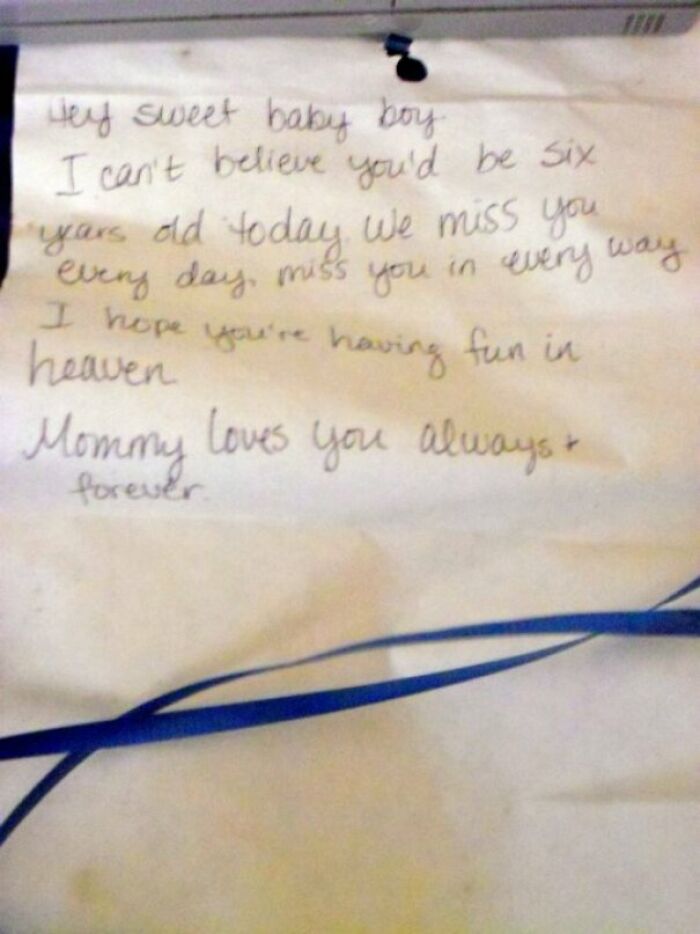 Hey sweet baby boy
I can't believe you'd be six
years old today. We miss you
every day. miss you in every way
I hope you're having fun in
heaven.
Mommy loves you always +
forever.